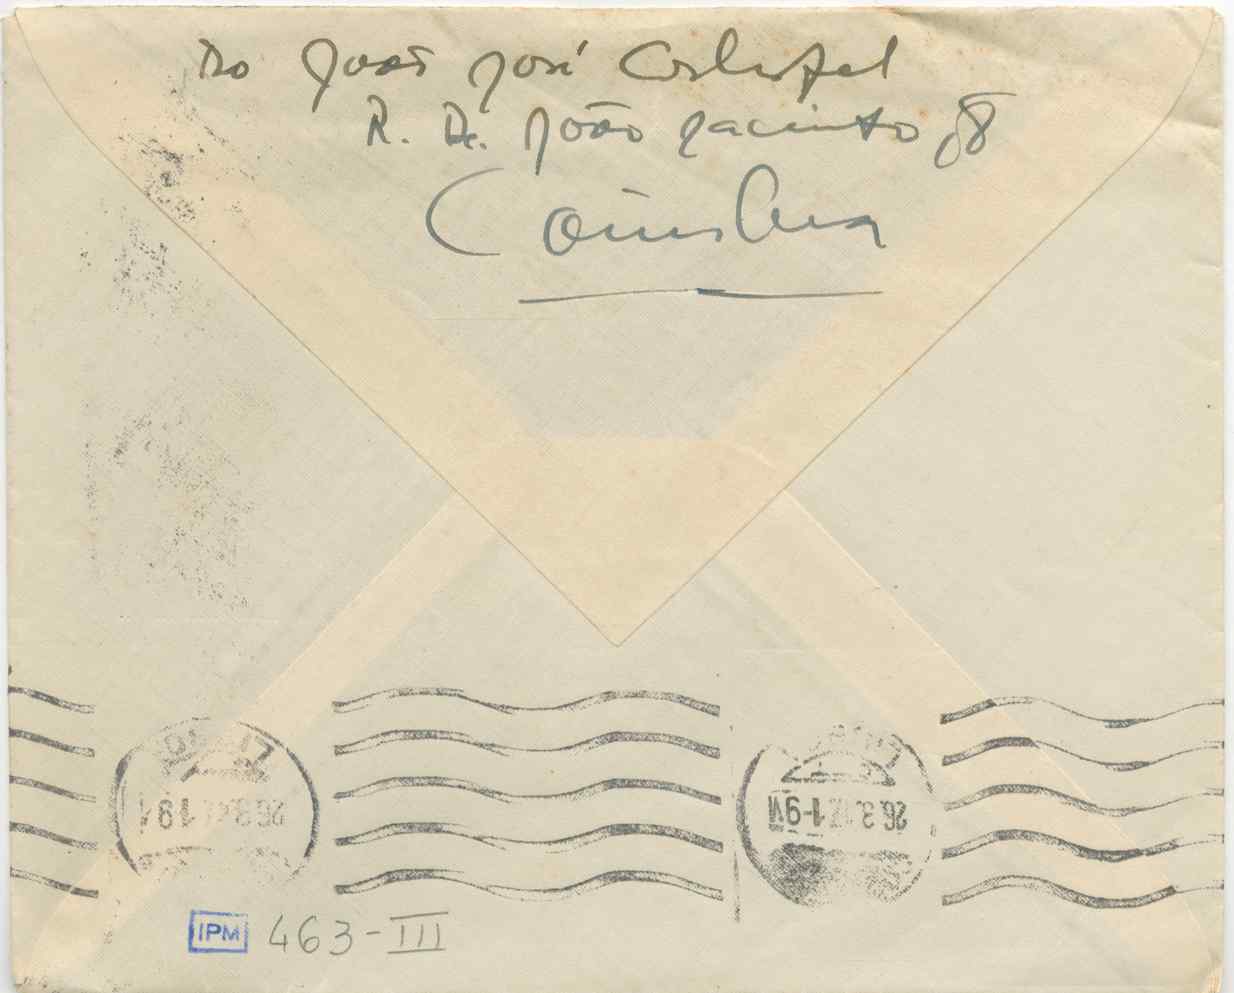 Do João José Cochofel
R. Dr. João Jacinto 18
Coimbra
26.3.
26.3. 1-9
IPM 463-III